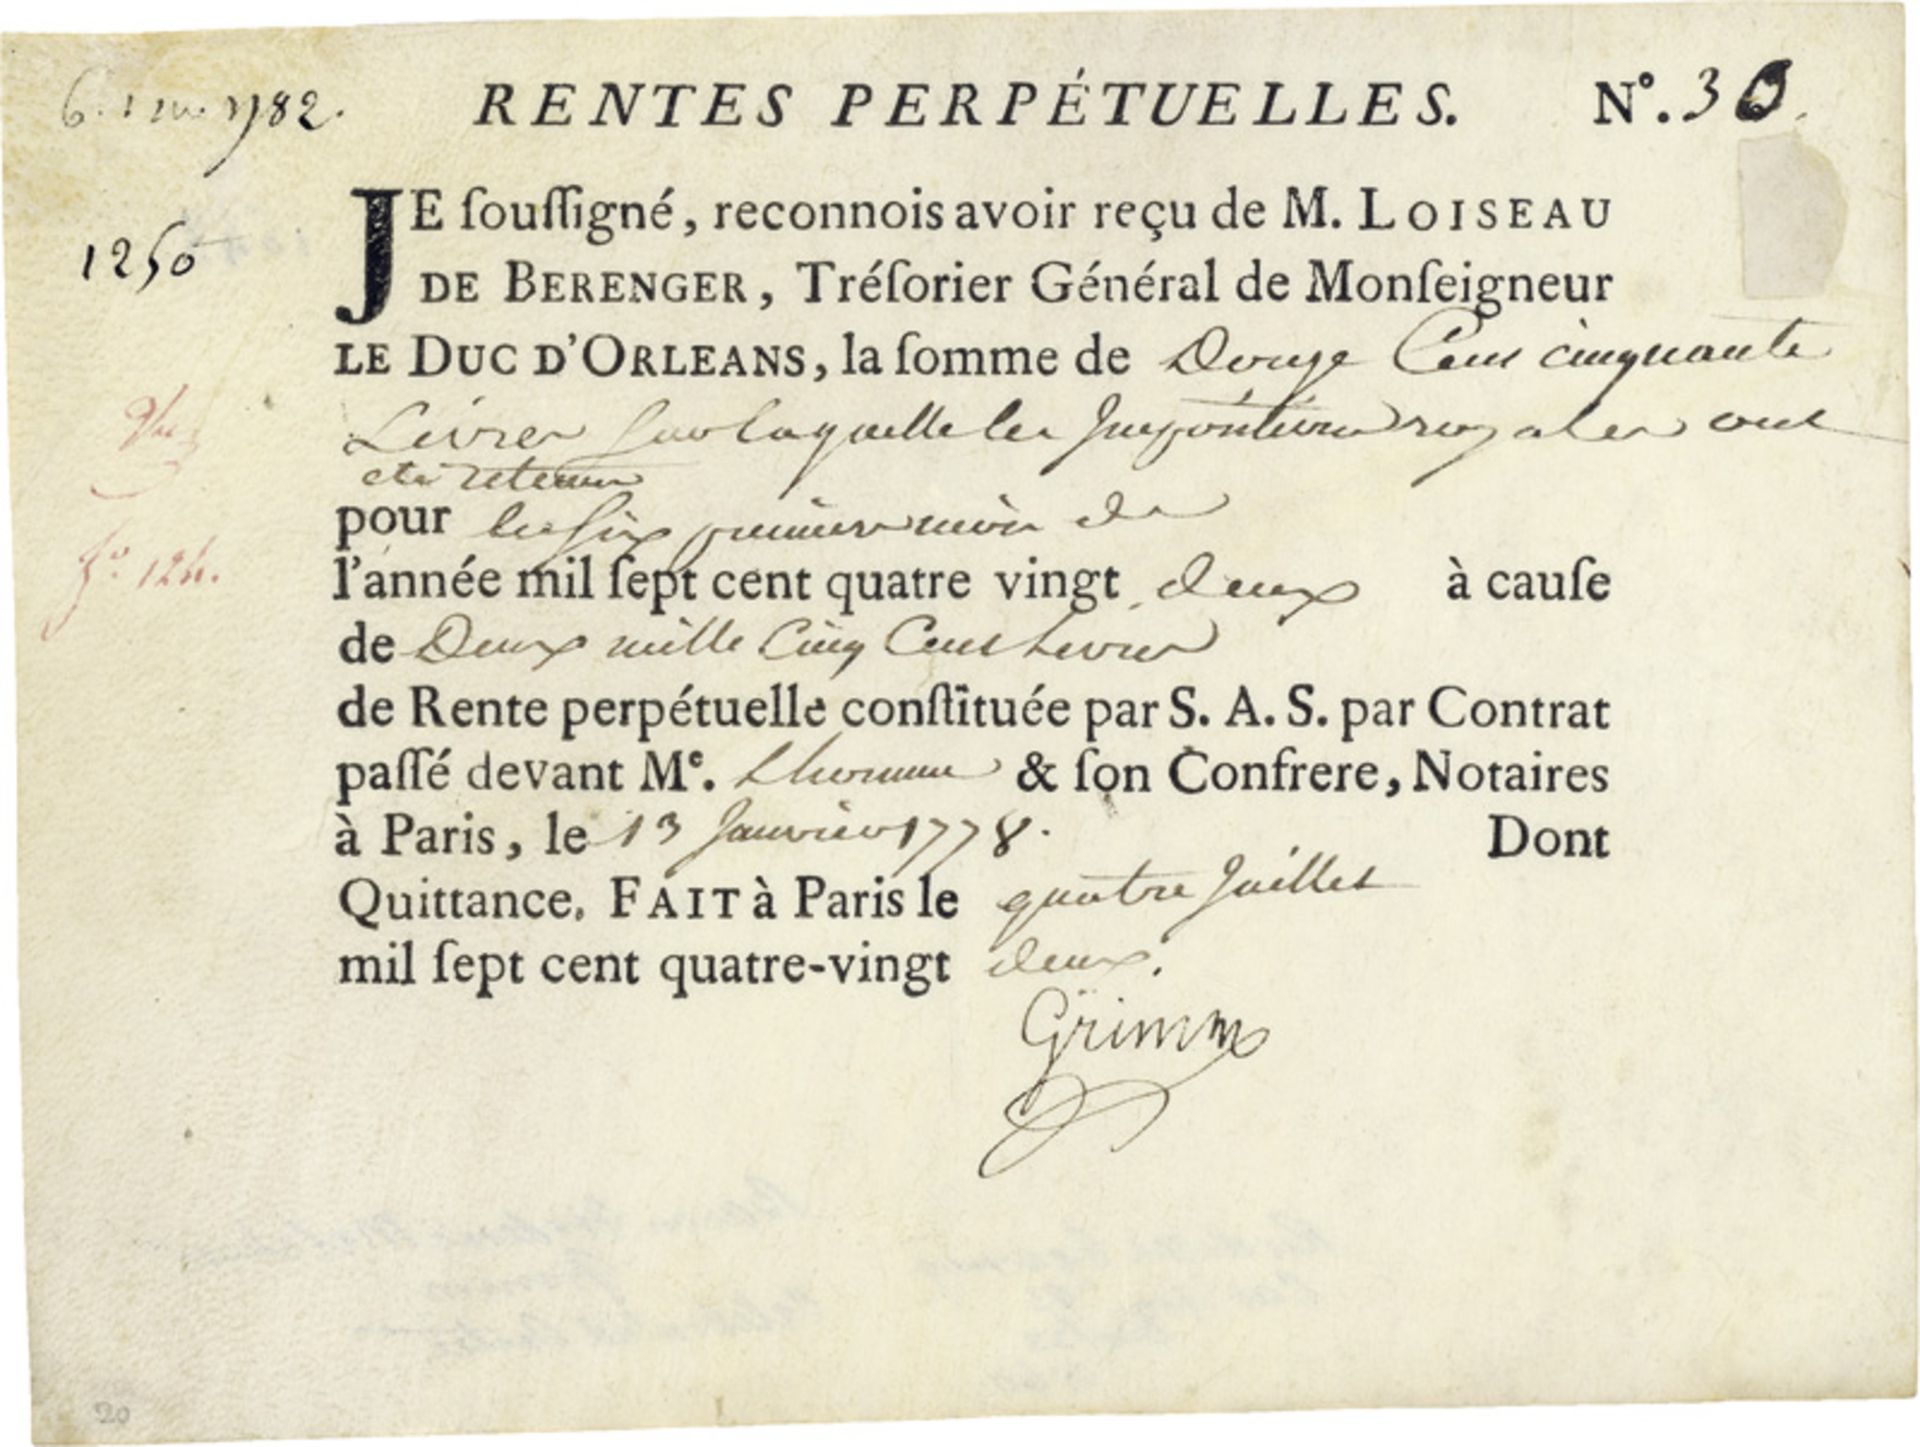 6. 1782.
RENTES PERPÉTUELLES. N°. 30.
1250
JE souſſigné, reconnois avoir reçu de M. LOISEAU
DE BERENGER, Tréſorier Général de Monſeigneur
LE DUC D'ORLEANS, la ſomme de Douze Cent cinquante
Livres Sur laquelle les Impositions royales ont
eté retenues
pour les six premiers mois de
l'année mil ſept cent quatre vingt deux à cauſe
de Deux mille Cinq Cent Livres
de Rente perpétuelle conſtituée par S. A. S. par Contrat
paſſé devant Me. Lhomme & ſon Confrere, Notaires
à Paris, le 13 Janvier 1778. Dont
Quittance. FAIT à Paris le quatre Juillet
mil ſept cent quatre-vingt deux.
Grimm
fo. 124.
20